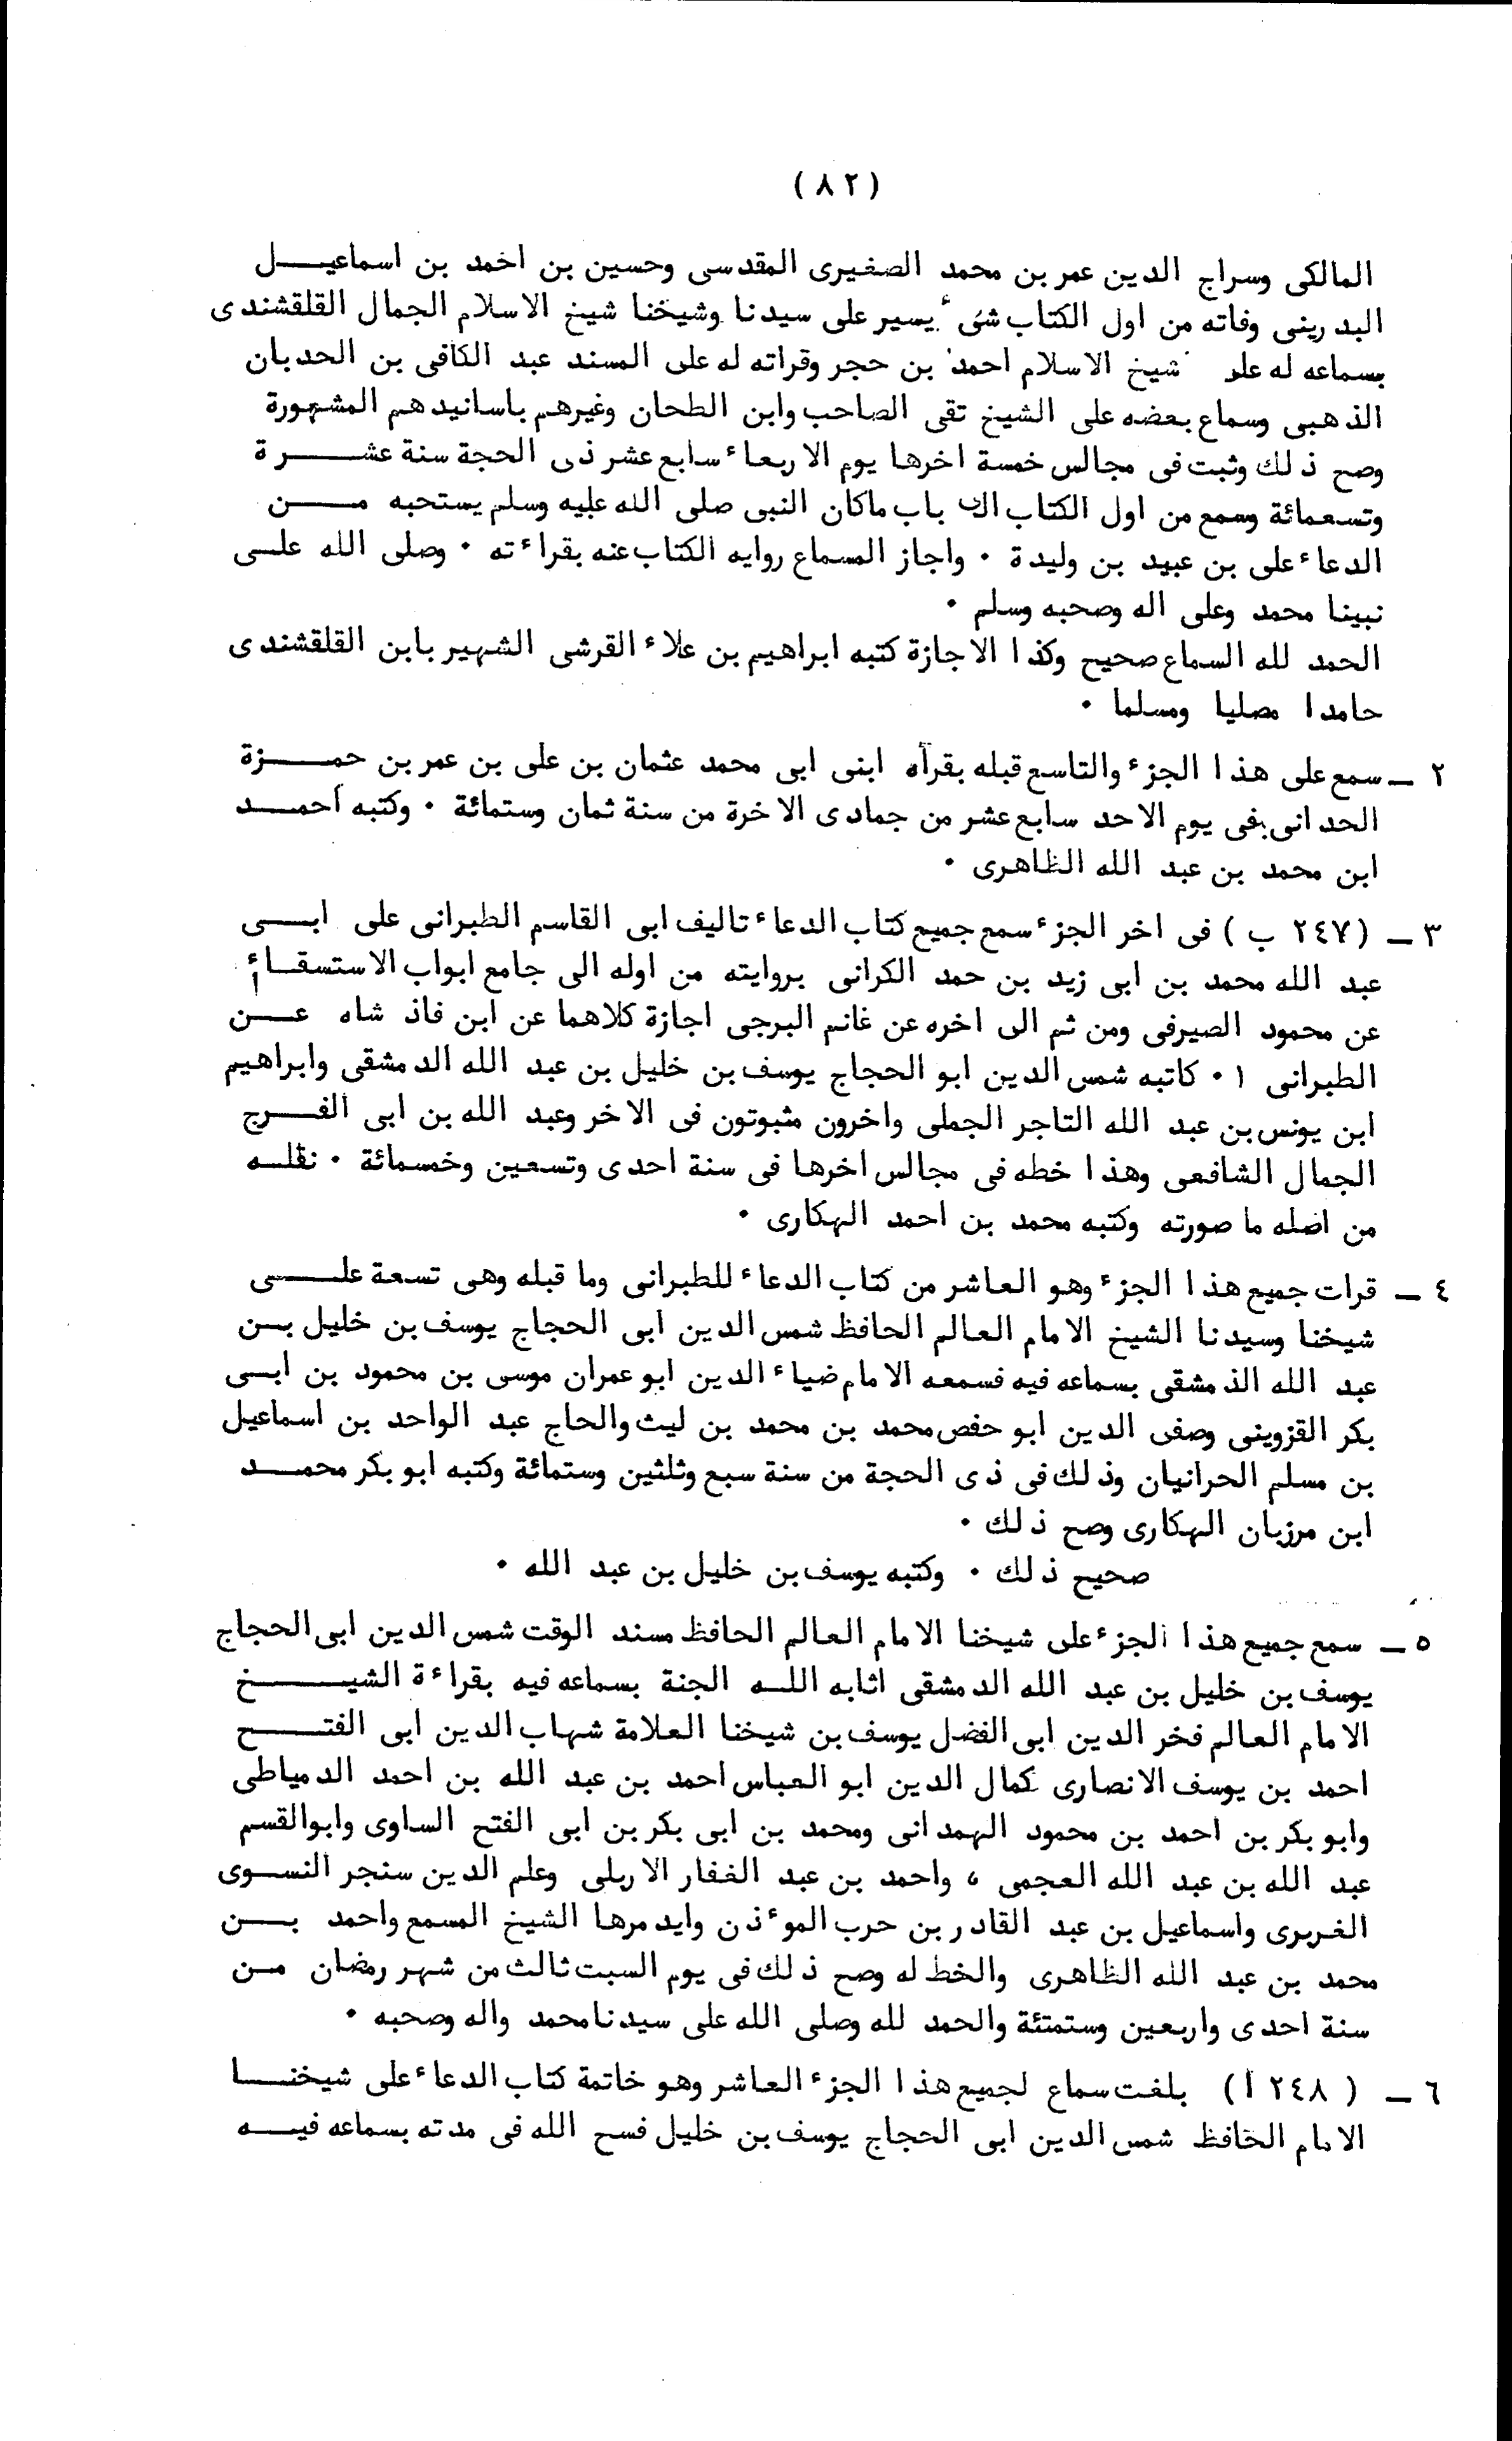 (٨٢)
المالكى وسراج الدين عمر بن محمد الصغيرى المقدسى وحسين بن اخمد بن اسماعيل
البدرينى وفاته من اول الكتاب شىء يسير على سيدنا وشيخنا شيخ الاسلام الجمال القلقشندى
بسماعه له على شيخ الاسلام احمد بن حجر وقراته له على المسند عبد الكافى بن الحدبان
الذهبى وسماع بعضه على الشيخ تقى الصاحب وابن الطحان وغيرهم باسانيدهم المشهورة
وصح ذلك وثبت فى مجالس خمسة اخرها يوم الاربعاء سابع عشر ذى الحجة سنة عشرة
وتسعمائة وسمع من اول الكتاب الى باب ماكان النبى صلى الله عليه وسلم يستحبه من
الدعاء على بن عبيد بن وليدة ٠ واجاز المسماع روايه الكتاب عنه بقراءته ٠ وصلى الله على
نبينا محمد وعلى اله وصحبه وسلم ٠
الحمد لله السماع صحيح وكذا الاجازة كتبه ابراهيم بن علاء القرشى الشهير بابن القلقشندى
حامدا مصليا ومسلما ٠
٢ ــ سمع على هذا الجزء والتاسع قبله بقرأه ابنى ابى محمد عثمان بن على بن عمر بن حمزة
الحدانى بفى يوم الاحد سابع عشر من جمادى الاخرة من سنة ثمان وستمائة ٠ وكتبه أحمد
ابن محمد بن عبد الله الظاهرى ٠
٣ ــ (٢٤٧ ب) فى اخر الجزء سمع جميع كتاب الدعاء تاليف ابى القاسم الطبرانى على ابى
عبد الله محمد بن ابى زيد بن حمد الكرانى بروايته من اوله الى جامع ابواب الاستسقاء
عن محمود الصيرفى ومن ثم الى اخره عن غانم البرجى اجازة كلاهما عن ابن فاذ شاه عن
الطبرانى ١٠ كاتبه شمس الدين ابو الحجاج يوسف بن خليل بن عبد الله الدمشقى وابراهيم
ابن يونس بن عبد الله التاجر الجملى واخرون مثبوتون فى الاخر وعبد الله بن ابى الفرج
الجمال الشافعى وهذا خطه فى مجالس اخرها فى سنة احدى وتسعين وخمسمائة ٠ نقله
من اصله ما صورته وكتبه محمد بن احمد الهكارى ٠
٤ ــ قرات جميع هذا الجزء وهو العاشر من كتاب الدعاء للطبرانى وما قبله وهى تسعة على
شيخنا وسيدنا الشيخ الامام العالم الحافظ شمس الدين ابى الحجاج يوسف بن خليل بن
عبد الله الذمشقى بسماعه فيه فسمعه الامام ضياء الدين ابو عمران موسى بن محمود بن ابى
بكر القزوينى وصفى الدين ابو حفص محمد بن محمد بن ليث والحاج عبد الواحد بن اسماعيل
بن مسلم الحرانيان وذلك فى ذى الحجة من سنة سبع وثلثين وستمائة وكتبه ابو بكر محمد
ابن مرزبان الهكارى وصح ذلك ٠
صحيح ذلك ٠ وكتبه يوسف بن خليل بن عبد الله ٠
٥ ــ سمع جميع هذا الجزء على شيخنا الامام العالم الحافظ مسند الوقت شمس الدين ابى الحجاج
يوسف بن خليل بن عبد الله الدمشقى اثابه الله الجنة بسماعه فيه بقراءة الشيخ
الامام العالم فخر الدين ابى الفضل يوسف بن شيخنا العلامة شهاب الدين ابى الفتح
احمد بن يوسف الانصارى كمال الدين ابو العباس احمد بن عبد الله بن احمد الدمياطى
وابو بكر بن احمد بن محمود الهمدانى ومحمد بن ابى بكر بن ابى الفتح الساوى وابوالقسم
عبد الله بن عبد الله العجمى ، واحمد بن عبد الغفار الاربلى وعلم الدين سنجر النسوى
الغربرى واسماعيل بن عبد القادر بن حرب الموءذن وايدمرها الشيخ المسمع واحمد بن
محمد بن عبد الله الظاهرى والخط له وصح ذلك فى يوم السبت ثالث من شهر رمضان من
سنة احدى واربعين وستمتئة والحمد لله وصلى الله على سيدنا محمد واله وصحبه ٠
٦ ــ (٢٤٨ أ) بلغت سماع لجميع هذا الجزء العاشر وهو خاتمة كتاب الدعاء على شيخنا
الامام الحافظ شمس الدين ابى الحجاج يوسف بن خليل فسح الله فى مدته بسماعه فيه